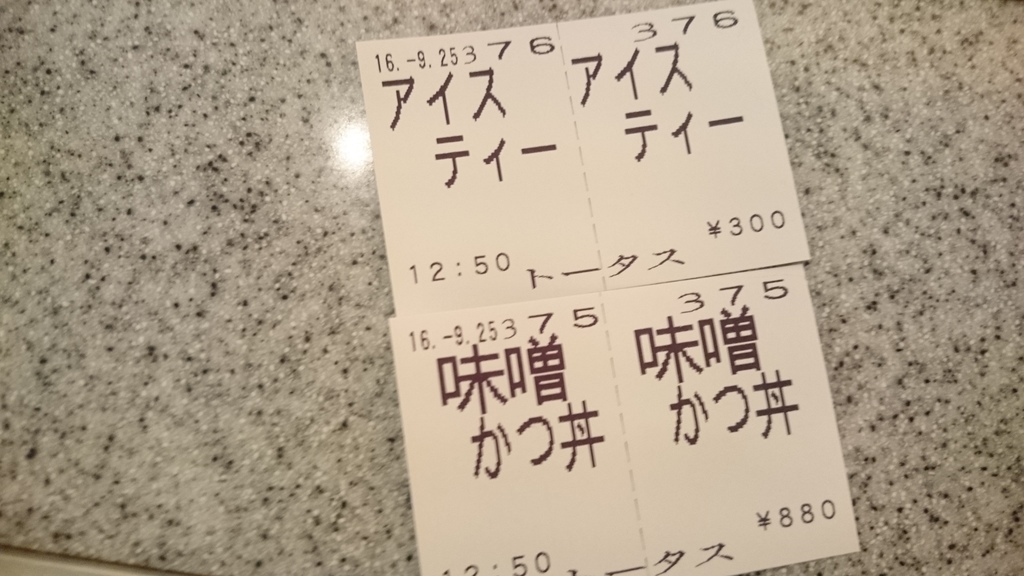 16.-9.25 376 376
アイス アイス
ティー ティー
¥300
12:50 トータス
16.-9.25 375 375
味噌 味噌
かつ丼 かつ丼
¥880
12:50 トータス